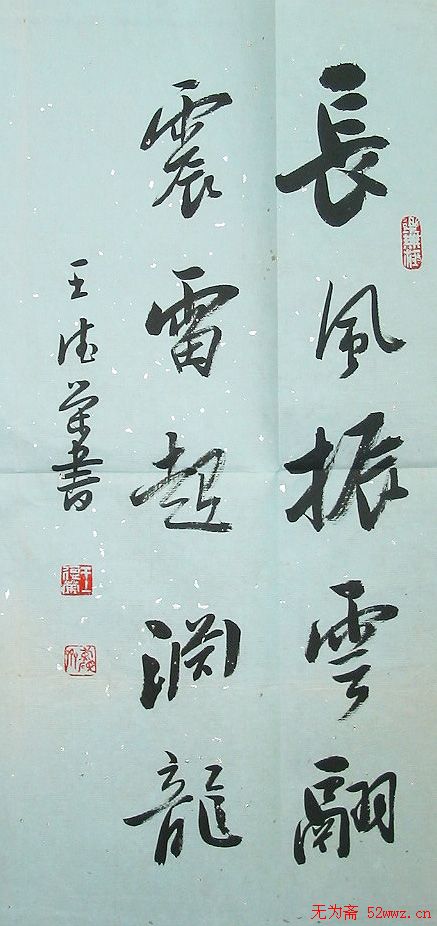 長風振雲翮
震雷起渊龍
王德荣書
无为斋 52wwz.cn